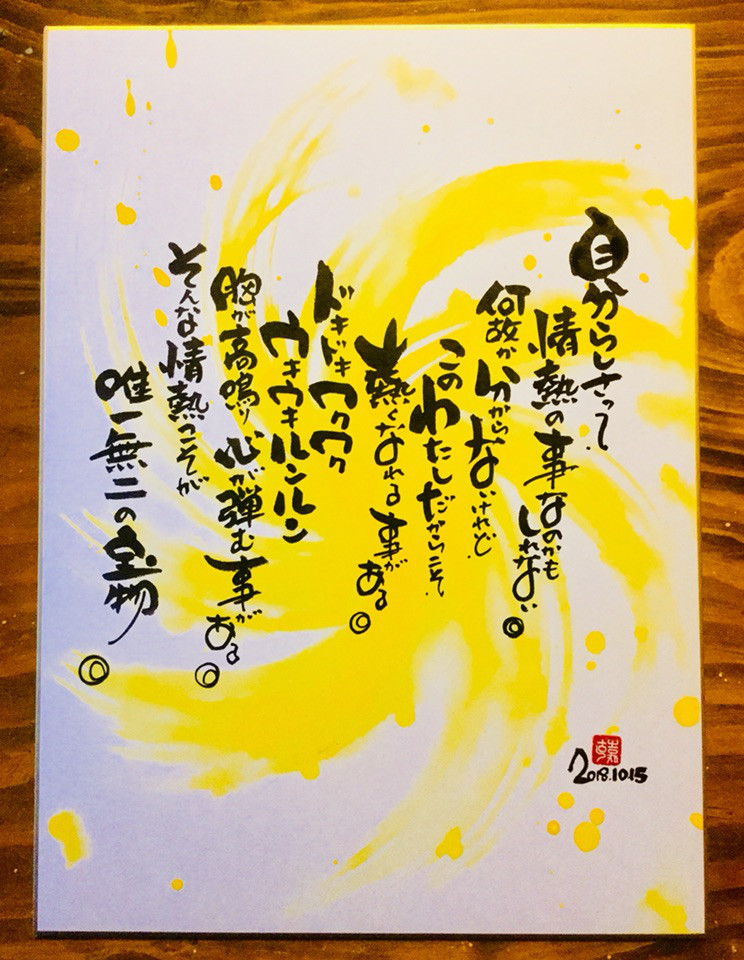 自分らしさって、
情熱の事なのかも
しれない。
何故か分からないけれど、
このわたしだからこそ、
熱くなれる事がある。
ドキドキワクワク
ウキウキルンルン
胸が高鳴り心が弾む事がある。
そんな情熱こそが
唯一無二の宝物。
2018.10.15